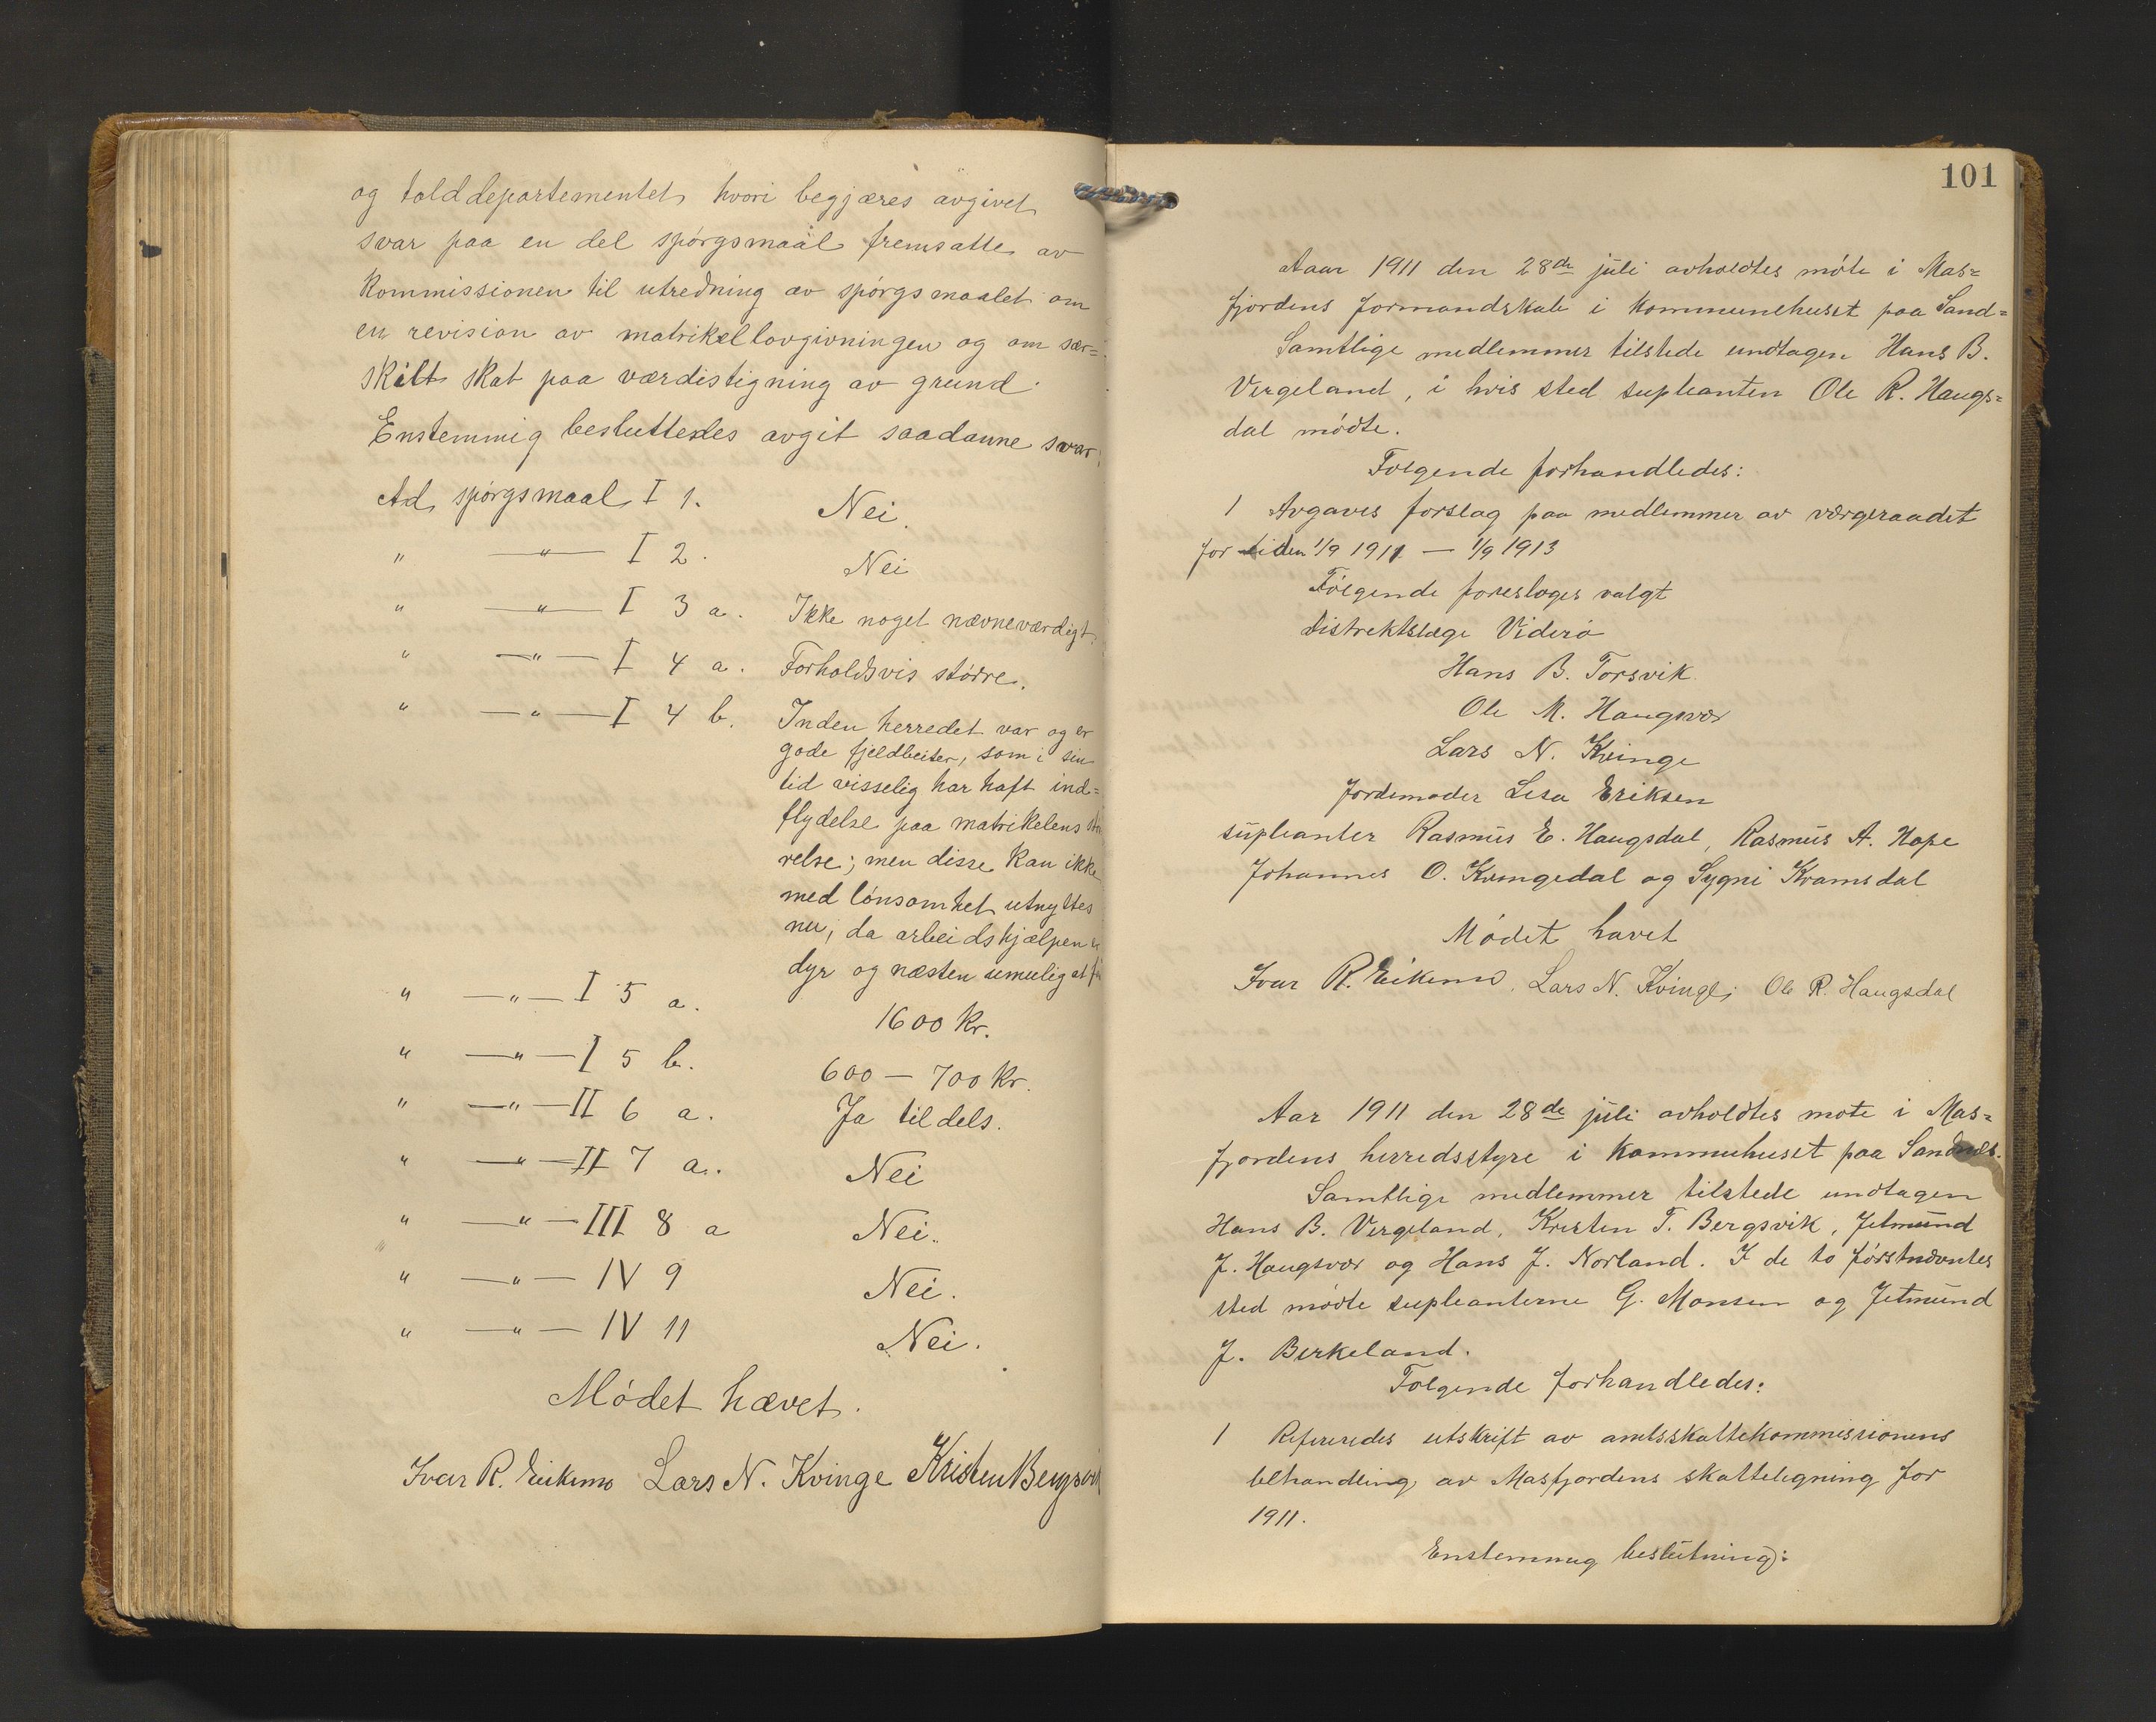 og tolddepartementet hvori begjæres avgivet
svar paa en del spórgsmaal fremsatte av
Kommissionen til utredning av spórgsmaalet om
en revision av matrikellovgivningen og om sær=
skilt skat paa værdistigning av grund.
Enstemmig besluttedes avgit saadanne svar:
Ad spórgsmaal I 1. Nei.
" —"— I 2. Nei
" —"— I 3 a. Ikke noget nævneværdigt.
" —"— I 4 a. Forholdsvis stórre.
" —"— I 4 b. Inden herredet var og er
gode fjeldbeiter, som i sin
tid visselig har haft ind=
flydelse paa matrikelens stó
relse; men disse kan ikke
med lónsomhet utnyttes
nu, da arbeidshjælpen er
dyr og næsten umulig at få
" —"— I 5 a. 1600 Kr.
" —"— I 5 b. 600 — 700 Kr.
" —"— II 6 a. Ja tildels.
" —"— II 7 a. Nei
" —"— III 8 a Nei.
" —"— IV 9 Nei.
" —"— IV 11 Nei.
Módet hævet.
Ivar R. Eikemo Lars N. Kvinge Kristen Bergsvik
101
Aaar 1911 den 28de juli avholdtes móte i Mas=
fjordens formandskab i Kommunehuset paa Sand=
Samtlige medlemmer tilstede undtagen Hans B.
Vergeland, i hvis sted supleanten Ole R. Haugs=
dal módte.
Folgende forhandledes:
1 Avgaves forslag paa medlemmer av værgeraadet
for tiden 1/9 1911 — 1/9 1913
Fólgende foreslages valgt
Distrektslæge Viderö
Hans B. Torsvik
Ole M. Haugsvær
Lars N. Kvinge
Jordemoder Lesa Eriksen
supleanter Rasmus E. Haugsdal, Rasmus A. Hope
Johannes O. Kvingedal og Sygni Kvamsdal
Mødet hævet
Ivar R. Eikemo. Lars N. Kvinge; Ole R. Haugsdal
Aar 1911 den 28de juli avholdtes møte i Mas=
fjordens herredsstyre i Kommuhuset paa Sandnes.
Samtlige medlemmer tilstede undtagen
Hans B. Vergeland, Kristen T. Bergsvik, Jetmund
J. Haugsvær og Hans J. Norland. I de to førstnævntes
sted mødte supleanterne G. Monsen og Jetmund
J. Birkeland.
Følgende forhandledes:
1 Refereredes utskrift av amtsskattekommissionens
behandling av Masfjordens skatteligning for
1911.
Enstemmig beslutning: